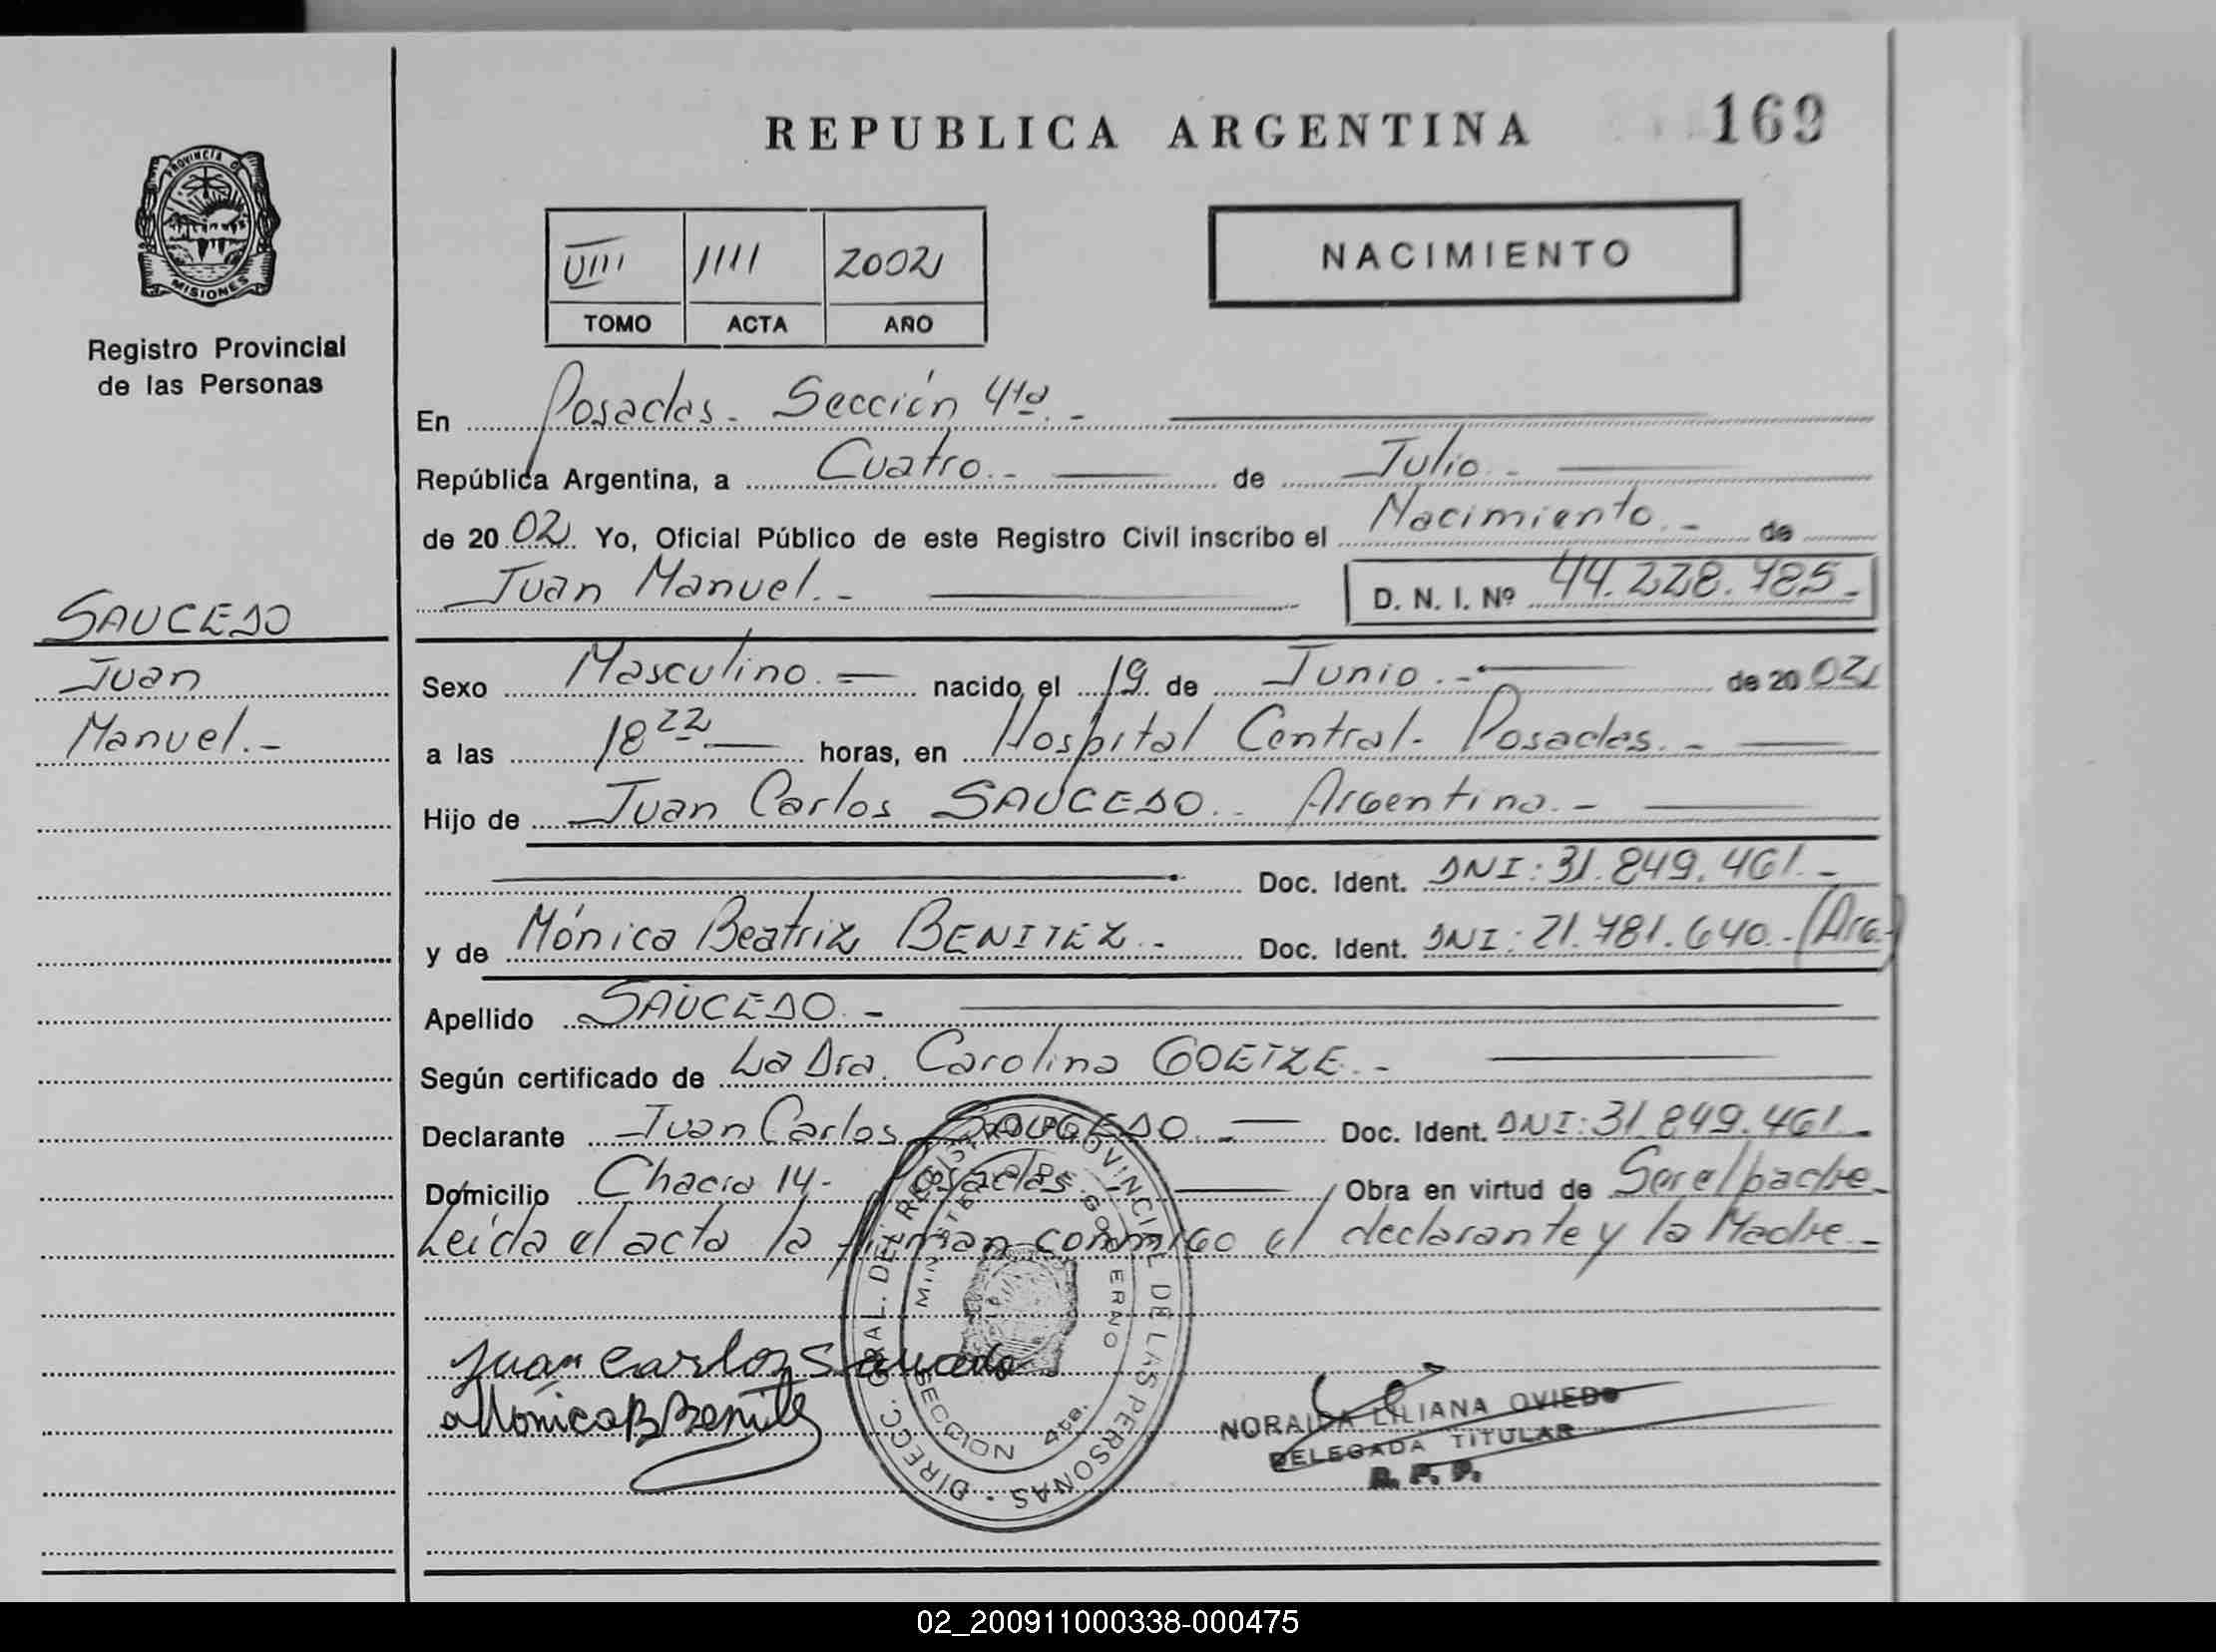 REPUBLICA ARGENTINA
169
PROVINCIA DE MISIONES
Registro Provincial
de las Personas
VIII 1111 2002
TOMO ACTA AÑO
NACIMIENTO
En Posadas - Sección 4ta. -
República Argentina, a Cuatro.- de Julio.-
de 2002 Yo, Oficial Público de este Registro Civil inscribo el Nacimiento.- de
Juan Manuel.- D. N. I. Nº 44.228.985.-
SAUCEDO
Juan
Manuel.-
Sexo Masculino.- nacido el 19 de Junio.- de 2002
a las 18 22 horas, en Hospital Central - Posadas.-
Hijo de Juan Carlos SAUCEDO.- Argentino.-
Doc. Ident. DNI: 31.849.461.-
y de Mónica Beatriz BENITEZ.- Doc. Ident. DNI: 21.981.640.- (Arg.)
Apellido SAUCEDO.-
Según certificado de La Dra. Carolina GOETZE.-
Declarante Juan Carlos SAUCEDO.- Doc. Ident. DNI: 31.849.461.-
Domicilio Chacra 14 - Posadas - Obra en virtud de Ser el padre -
Leída el acta la firman conmigo el declarante y la Madre.-
Juan Carlos Saucedo
Monica B Benitez
DIRECC. GRAL. DEL REGISTRO PROVINCIAL DE LAS PERSONAS -
MINISTERIO DE GOBIERNO
SECCION 4ta.
NORAIDA LILIANA OVIEDO
DELEGADA TITULAR
R. P. P.
02_200911000338-000475